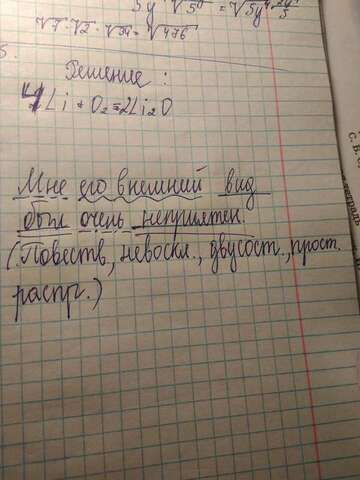 √7·√2·√34=√476
Решение:
4Li+O₂=2Li₂O
Мне его внешний вид
был очень неприятен.
(Повеств, невоскл., двусост., прост.
распр.)